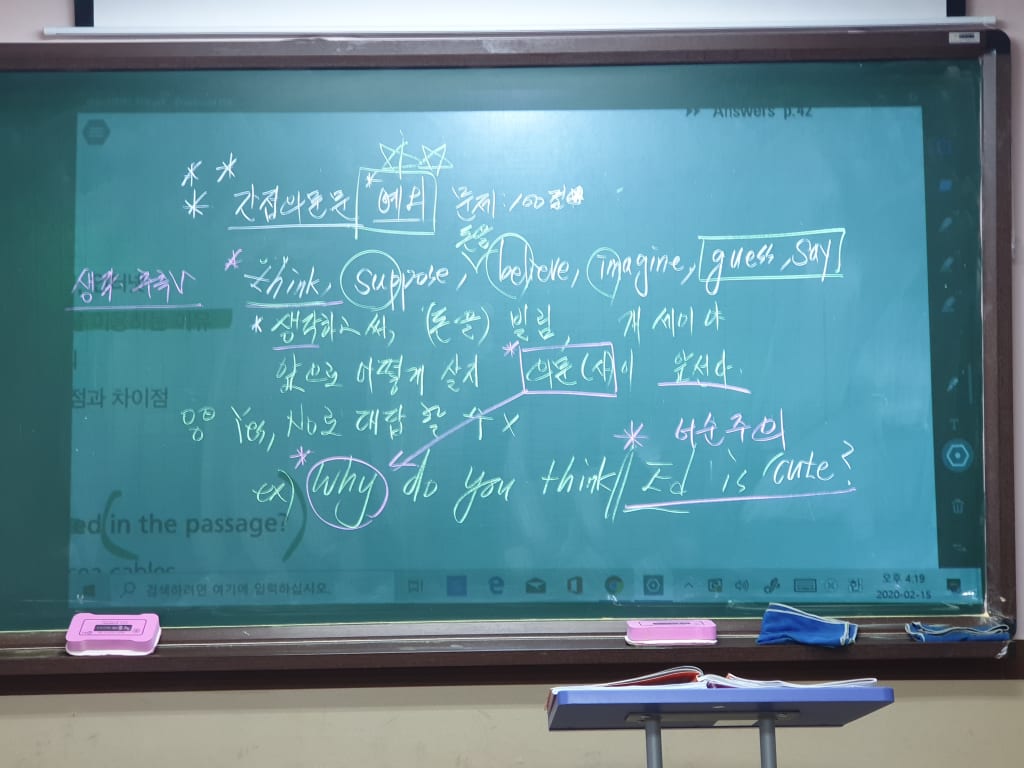 Answers p.42
간접의문문 예외 문제:100점
돈을
생각 추측V
think, suppose, believe, imagine, guess, say
생각하고써, (돈을) 빌림, 개세이야
앞으로 어떻게 살지 의문(사)이 앞선다.
점과 차이점
Yes, No로 대답할 수 X
어순주의
ex) Why do you think // Ed is cute?
ed in the passage?
sea cables
검색하려면 여기에 입력하십시오.
한
오후 4:19
2020-02-15